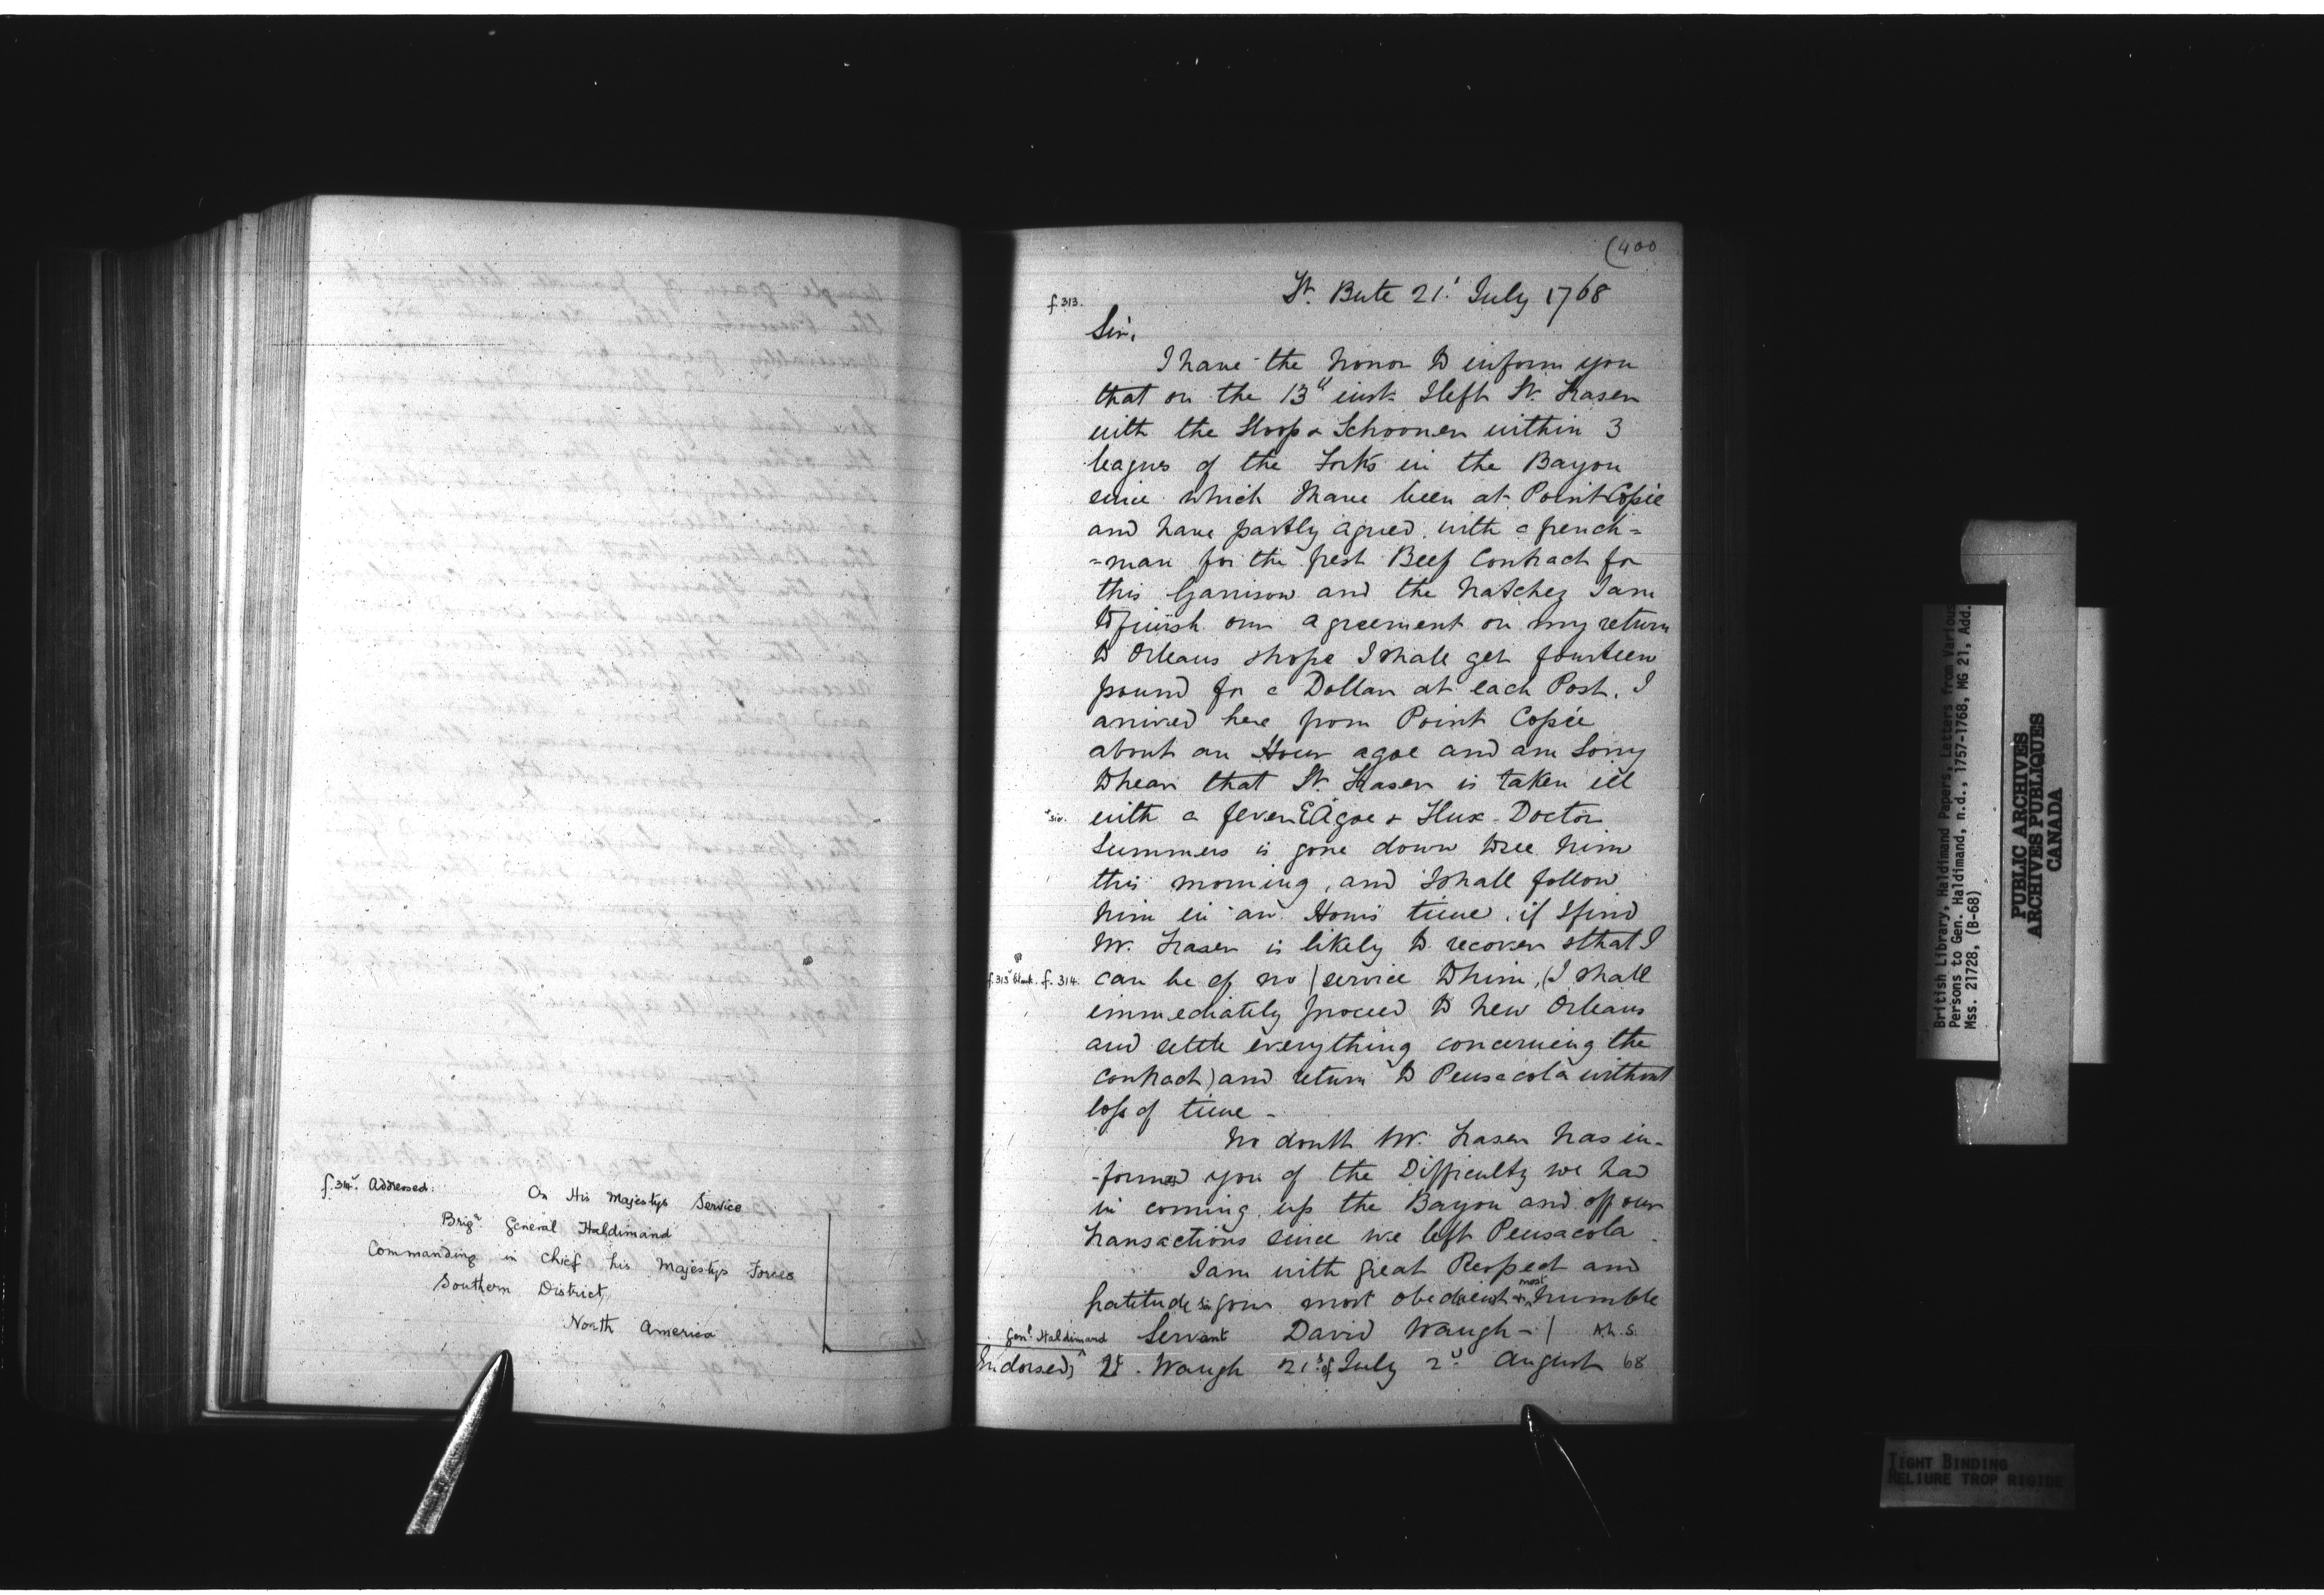 f. 314v. Addressed.
On His Majestys Service
Brigr General Haldimand
Commanding in Chief his Majestys Forces
Southern District,
North America
(400
f. 313.
Ft. Bute 21.t July 1768
Sir,
I have the honor to inform you
that on the 13th inst. I left Lt. Fraser
with the Sloop & Schooner within 3
leagues of the Forks in the Bayou
since which I have been at Point Copie
and have partly agreed with a french=
=man for the fresh Beef Contract for
this Garrison and the Natchez I am
to finish our agreement on my return
to Orleans & hope I shall get fourteen
pound for a Dollar at each Post. I
arrived here from Point Copie
about an Hour agoe and am Sorry
to hear that Lt. Fraser is taken ill
with a fever & Agoe & Flux - Doctor
Summers is gone down to see him
this morning, and I shall follow
him in an Hours time, if I find
Mr. Fraser is likely to recover & that I
f. 313v blank. f. 314. can be of no / service to him, (I shall
immediately proceed to New Orleans
and settle everything concerning the
Contract) and return to Pensacola without
loss of time -
No doubt Mr. Fraser has in-
-formed you of the Difficulty we had
in coming up the Bayou and off our
transactions since we left Pensacola.
I am with great Respect and
Gratitude Sir your most obedient & most humble
Servant David Waugh - / A.L.S.
Genl. Haldimand
Endorsed, Lt. Waugh 21st of July 2d August 68
British Library, Haldimand Papers, Letters from Various
Persons to Gen. Haldimand, n.d., 1757-1768, MG 21, Add.
Mss. 21728, (B-68)
PUBLIC ARCHIVES
ARCHIVES PUBLIQUES
CANADA
TIGHT BINDING
RELIURE TROP RIGIDE